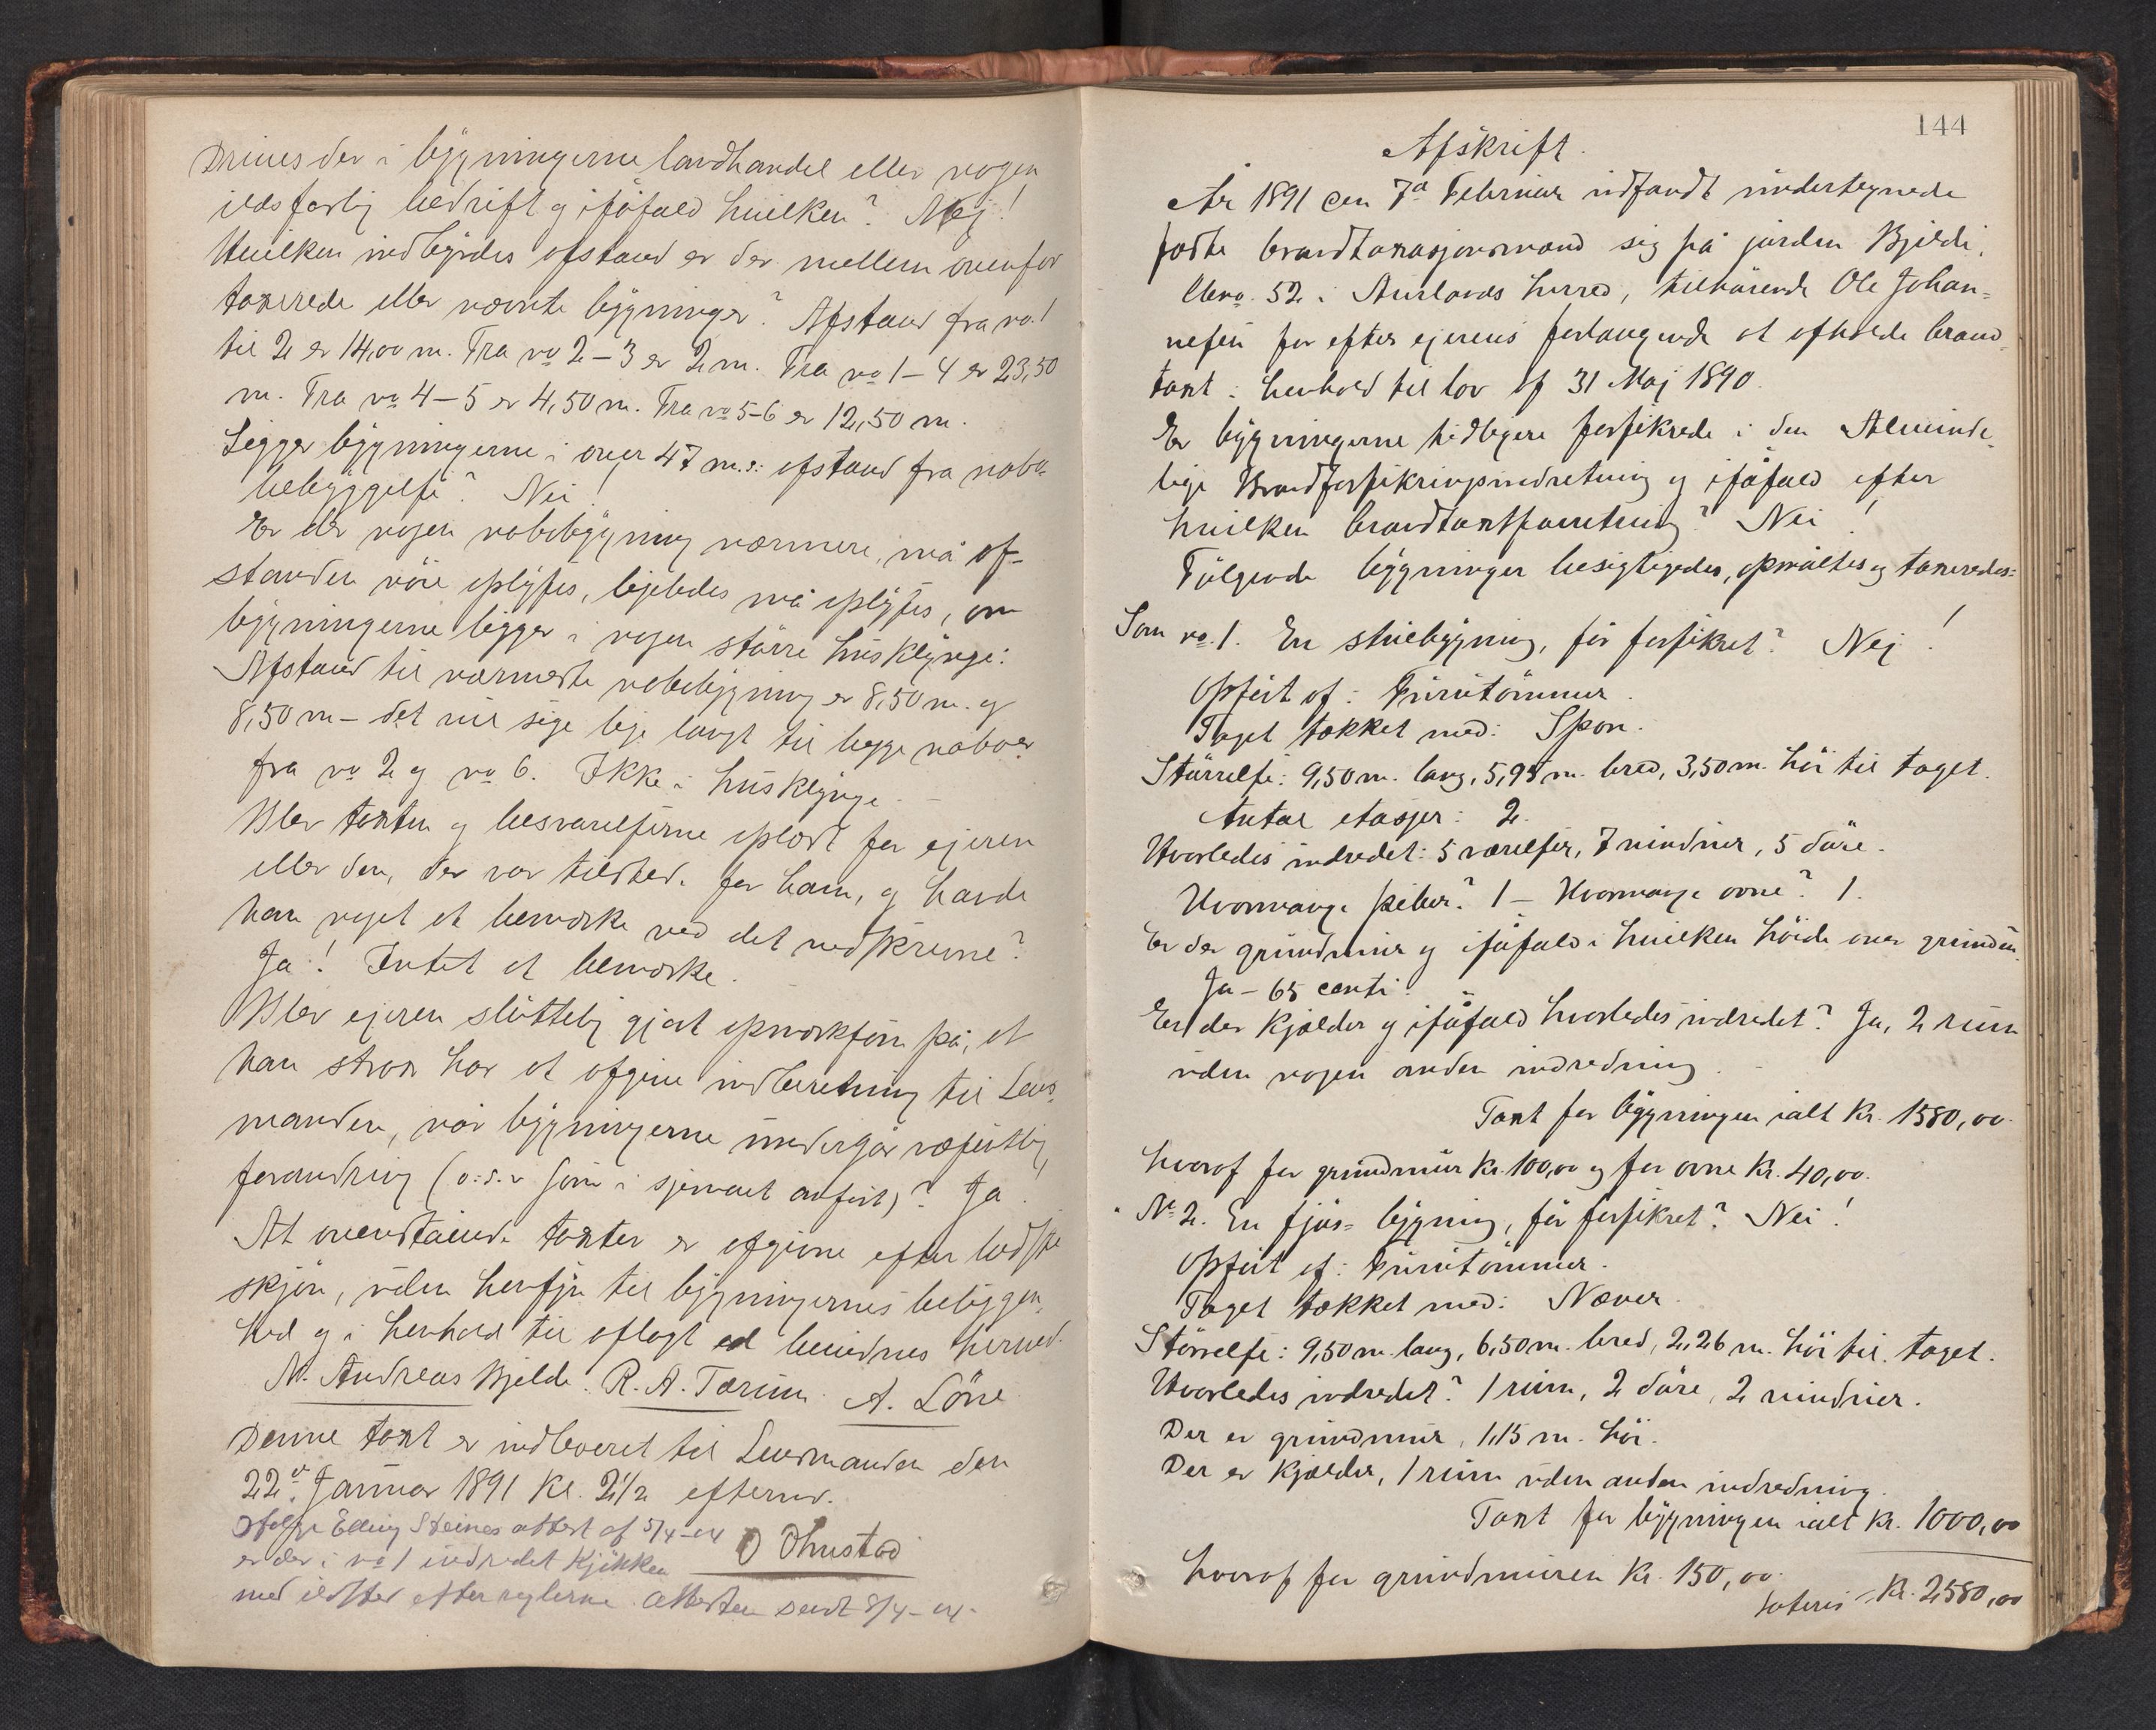 Drives der i bygningerne landhandel eller nogen
ildsfarlig bedrift og isåfald hvilken? Nej!
Hvilken indbyrdes afstand er der mellem ovenfor
taxerede eller nævnte bygninger? Afstand fra no. 1
til 2 er 14,00 m. Fra no 2–3 er 2 m. Fra no 1–4 er 23,50
m. Fra no 4–5 er 4,50 m. Fra no 5–6 er 12,50 m.
Ligger bygningerne i over 47 m.s: afstand fra nabo=
bebyggelse? Nei!
Er der nogen nabobygning nærmere, må af=
standen nöie oplyses, ligeledes må oplyses, om
bygningerne ligger i nogen större husklynge:
Afstand til nærmeste nabobygning er 8,50 m. og
8,50 m – det vil sige lige langt til begge naboer
fra no 2 og no 6. Ikke i husklynge. –
Blev taxten og besvarelserne oplæst for ejeren
eller den, der var tilsted. for ham, og havde
han noget at bemærke ved det nedskrevne?
Ja! Intet at bemærke.
Blev ejeren sluttelig gjort opmærksom på, at
han strax har at afgive indberetning til Lens=
manden, når bygningerne undergår væsentlig
forandring (o.s.v som i sjemaet anført)? Ja!
At ovenstående taxter er afgivne efter bedste
skjön, uden hensyn til bygningernes beliggen=
hed og i henhold til aflagt ed bevidnes herved.
M. Andreas Bjelde. R. A. Tærum. A. Löne
Denne taxt er indleveret til Lensmanden den
22d Januar 1891 Kl. 2½ efterm.
O Ohnstad
Ifølge Elling Steines attest af 5/4–04
er der i no 1 indredet Kjøkken
med ildsted efter reglerne. Attesten sendt 8/4–04.
144
Afskrift.
År 1891 den 7de Februar indfandt undertegnede
faste brandtaxasjonsmænd sig på jorden Bjelde,
no. 52 i Aurlands herred, tilhörende Ole Johan=
nesen for efter ejerens forlangende at afholde brand=
taxt i henhold til lov af 31 Maj 1890.
Er bygningerne tidligere forsikrede i den Alminde=
lige Brandforsikringsindretning og isåfald efter
hvilken brandtaxtforretning? Nei!
Fölgende bygninger besigtigedes, opmåltes og taxeredes:
Som no. 1. En stuebygning, för forsikret? Nej!
Opfört af: Furutömmer.
Taget tækket med: Spon.
Störrelse: 9,50 m. lang, 5,95 m. bred, 3,50 m. höi til taget.
Antal etasjer: 2.
Hvorledes indredet: 5 værelser, 7 vinduer, 5 döre.
Hvormange piber? 1 – Hvormange ovne? 1.
Er der grundmur og isåfald i hvilken höide over grunden.
Ja – 65 centi.
Er der Kjælder og isåfald hvorledes indredet? Ja, 2 rum
uden nogen anden indredning.
Taxt for bygningen ialt Kr. 1580,00.
hvoraf for grundmur Kr. 100,00 og for ovne Kr. 40,00.
No 2. En fjös= bygning, för forsikret? Nei!
Opfört af: Furutömmer.
Taget tækket med: Næver.
Störrelse: 9,50 m. lang, 6,50 m. bred, 2,26 m. höi til taget.
Hvorledes indredet? 1 rum, 2 döre, 2 vinduer.
Der er grundmur, 1,15 m. höi.
Der er Kjælder, 1 rum uden anden indredning.
Taxt for bygningen ialt Kr. 1000,00
hvoraf for grundmuren Kr. 150,00.
lateris Kr. 2,580,00